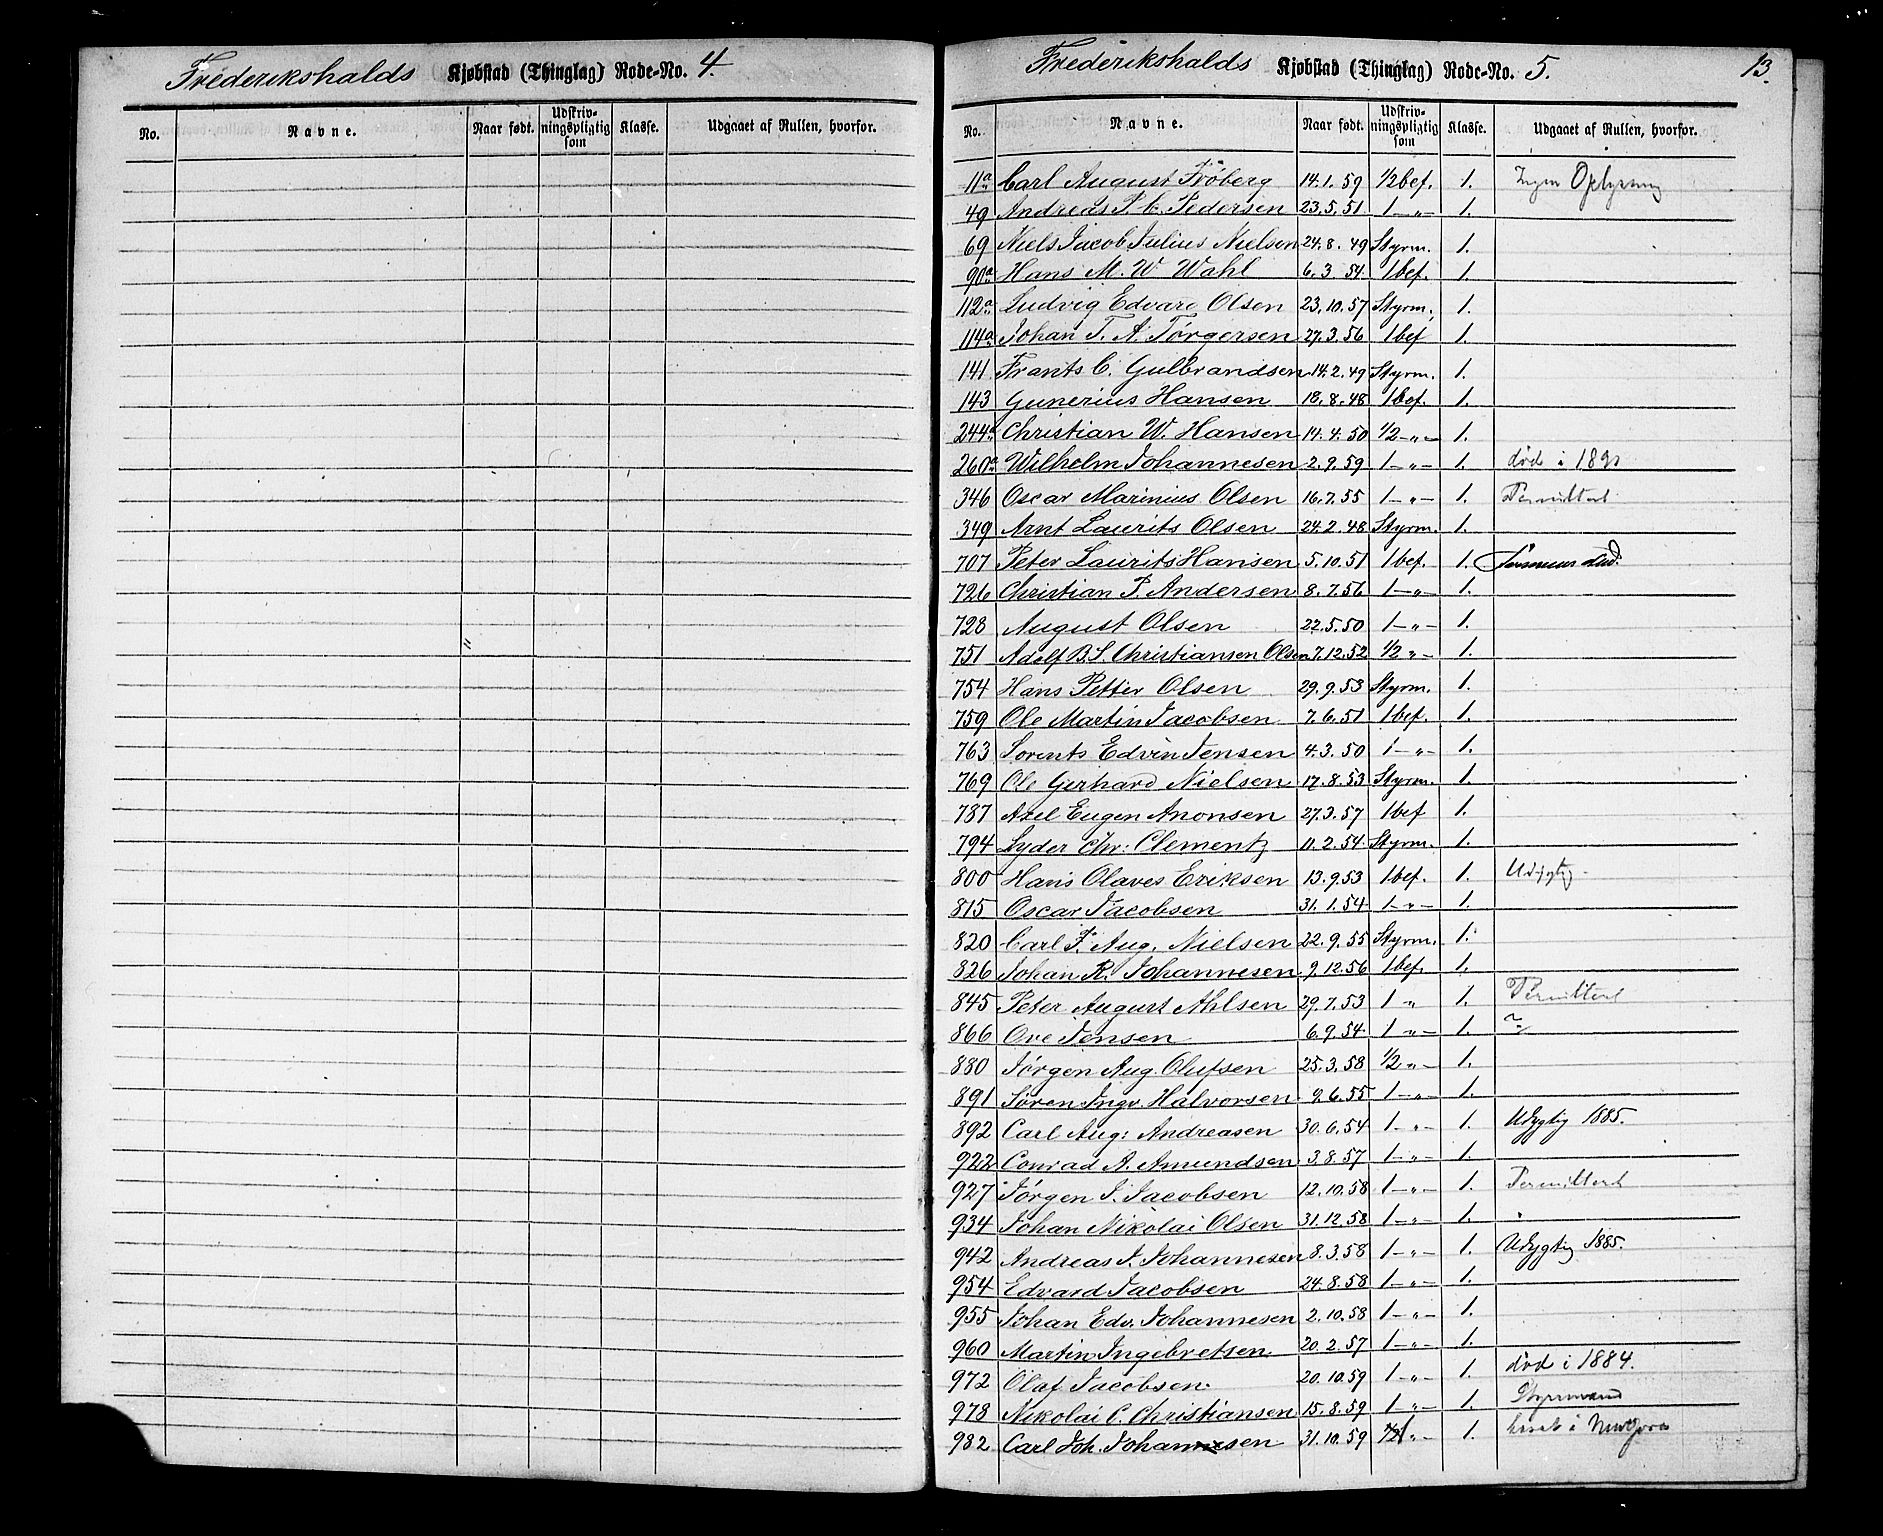 Frederikshalds Kjøbstad (Thinglag) Rode-No. 4.
No. Navne. Naar født. Udskriv-ningspligtig som Klasse. Udgaaet af Rullen, hvorfor.
Frederikshalds Kjøbstad (Thinglag) Rode-No. 5. 13.
No. Navne. Naar født. Udskriv-ningspligtig som Klasse. Udgaaet af Rullen, hvorfor.
11a Carl August Frøberg 14.1.59 1/2 bef. 1. Ingen Oplysning
49 Andreas P. C. Pedersen 23.5.51 1 -„- 1.
69 Niels Jacob Julius Nielsen 24.8.49 Styrm. 1.
90a Hans M. W Wahl 6.3 54. 1 bef. 1.
112a Ludvig Edvard Olsen 23.10.57 Styrm. 1.
114a Johan T. A. Torgersen 27.3.56 1 bef 1.
141 Frants C. Gulbrandsen 14.2.49 Styrm. 1.
143 Gunerius Hansen 12.8.48 1 bef. 1.
244a Christian W. Hansen 14.4.50 1/2 -„- 1.
260a Wilhelm Johannesen 2.9.59 1 -„- 1. død i 1890
346 Oscar Marinius Olsen 16.7.55 1 -„- 1. Permittert
349 Arnt Laurits Olsen 24.2.48 Styrm. 1.
707 Peter Laurits Hansen 5.10.51 1 bef. 1.
726 Christian P. Andersen 8.7.56 1 -„- 1.
728 August Olsen 22.5.50 1 -„- 1.
751 Adolf B. S. Christiansen Olsen 7.12.52 1/2 „- 1.
754 Hans Petter Olsen 29.9.53 Styrm. 1.
759 Ole Martin Jacobsen 7.6.51 1 bef. 1.
763 Lorents Edvin Jensen 4.3.50 1 -„- 1.
769 Ole Gerhard Nielsen 17.8.53 Styrm. 1.
787 Axel Eugen Anonsen 27.3.57 1 bef 1.
794 Lyder Chr: Clementz 11.2.54. Styrm. 1.
800 Hans Olaves Eriksen 13.9.53 1 bef. 1. Udygtig
815 Oscar Jacobsen 31.1.54 1 -„- 1.
820 Carl F. Aug. Nielsen 22.9.55 Styrm. 1.
826 Johan R. Johannesen 9.12.56 1 bef. 1.
845 Peter August Ahlsen 29.7.53 1 „ 1. Permittert
866 Ove Jensen 6.9.54. 1 -„- 1.
880 Jørgen Aug. Olufsen 25.3.58 1/2 „- 1.
891 Søren Ingv. Halvorsen 9.6.55 1 -„- 1.
892 Carl Aug: Andreasen 30.6.54 1 -„- 1. Udygtig 1885.
922 Conrad A. Amundsen 3.8.57 1 -„- 1.
927 Jørgen J. Jacobsen 12.10.58 1 -„- 1. Permittert
934 Johan Nikolai Olsen 31.12.58 1 -„- 1.
942 Andreas J. Johannesen 8.3.58 1 -„- 1. Udygtig 1885.
954 Edvard Jacobsen 24.8.58 1 -„- 1.
955 Johan Edv. Johannesen 2.10.58 1 -„- 1.
960 Martin Ingebretsen 20.2.57 1 -„- 1.
972 Olaf Jacobsen. 20.10.59 1 -„- 1. død i 1884.
978 Nikolai C. Christiansen 15.8.59 1 -„- 1. Styrmand
982 Carl Joh. Johannesen 31.10.59 „- 1.